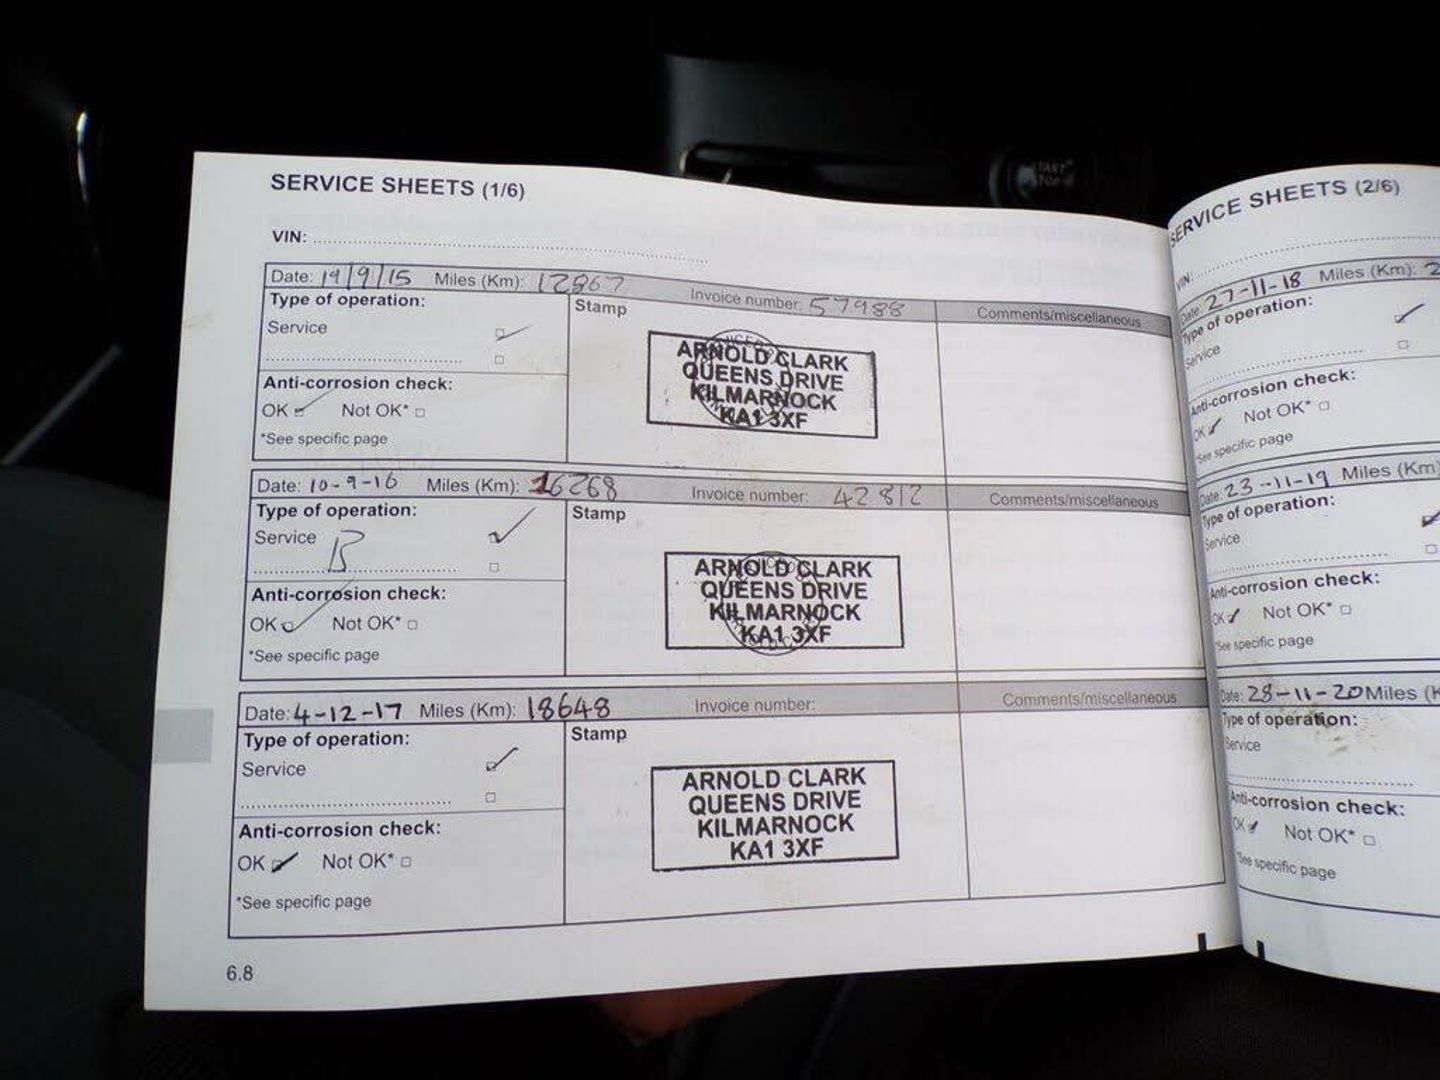 SERVICE SHEETS (1/6)
VIN:
Date: 19/9/15 Miles (Km): 12867 Invoice number: 57988 Comments/miscellaneous
Type of operation:
Service
Stamp
ARNOLD CLARK
QUEENS DRIVE
KILMARNOCK
KA1 3XF
Anti-corrosion check:
OK Not OK*
*See specific page
Date: 10-9-16 Miles (Km): 16268 Invoice number: 42812 Comments/miscellaneous
Type of operation:
Service
B
Stamp
ARNOLD CLARK
QUEENS DRIVE
KILMARNOCK
KA1 3XF
Anti-corrosion check:
OK Not OK*
*See specific page
Date: 4-12-17 Miles (Km): 18648 Invoice number: Comments/miscellaneous
Type of operation:
Service
Stamp
ARNOLD CLARK
QUEENS DRIVE
KILMARNOCK
KA1 3XF
Anti-corrosion check:
OK Not OK*
*See specific page
6.8
SERVICE SHEETS (2/6)
VIN:
Date: 27-11-18 Miles (Km): 2
Type of operation:
Service
Anti-corrosion check:
OK Not OK*
*See specific page
Date: 23-11-19 Miles (Km)
Type of operation:
Service
Anti-corrosion check:
OK Not OK*
*See specific page
Date: 28-11-20 Miles (K
Type of operation:
Service
Anti-corrosion check:
OK Not OK*
*See specific page